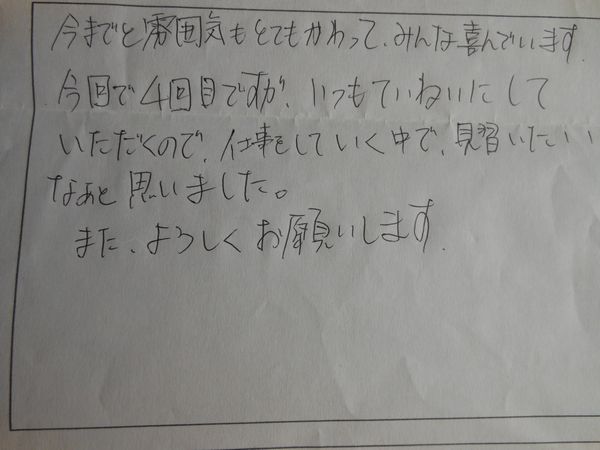 今までと雰囲気もとてもかわって、みんな喜んでいます。
今回で4回目ですが、いつもていねいにして
いただくので、仕事をしていく中で、見習いたいい
なぁと思いました。
また、よろしくお願いします。